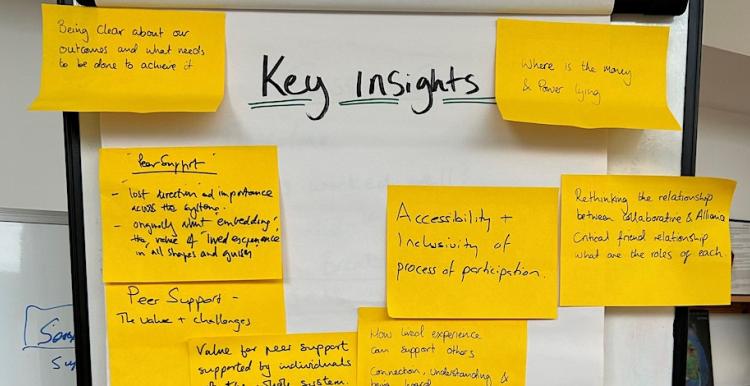 Being Clear about our
outcomes and what needs
to be done to achieve it
Key Insights
Where is the money
& Power lying
"Peer Support"
- lost direction and importance
across the system.
- originally want embedding
the value of 'lived experience
in all shapes and guises
Accessibility +
Inclusivity of
process of participation.
Rethinking the relationship
between collaborative & Alliance
Critical friend relationship
what are the roles of each.
Peer Support -
The value + challenges
Value for peer support
supported by individuals
system.
How lived experience
can support others
Connection, understanding &
being